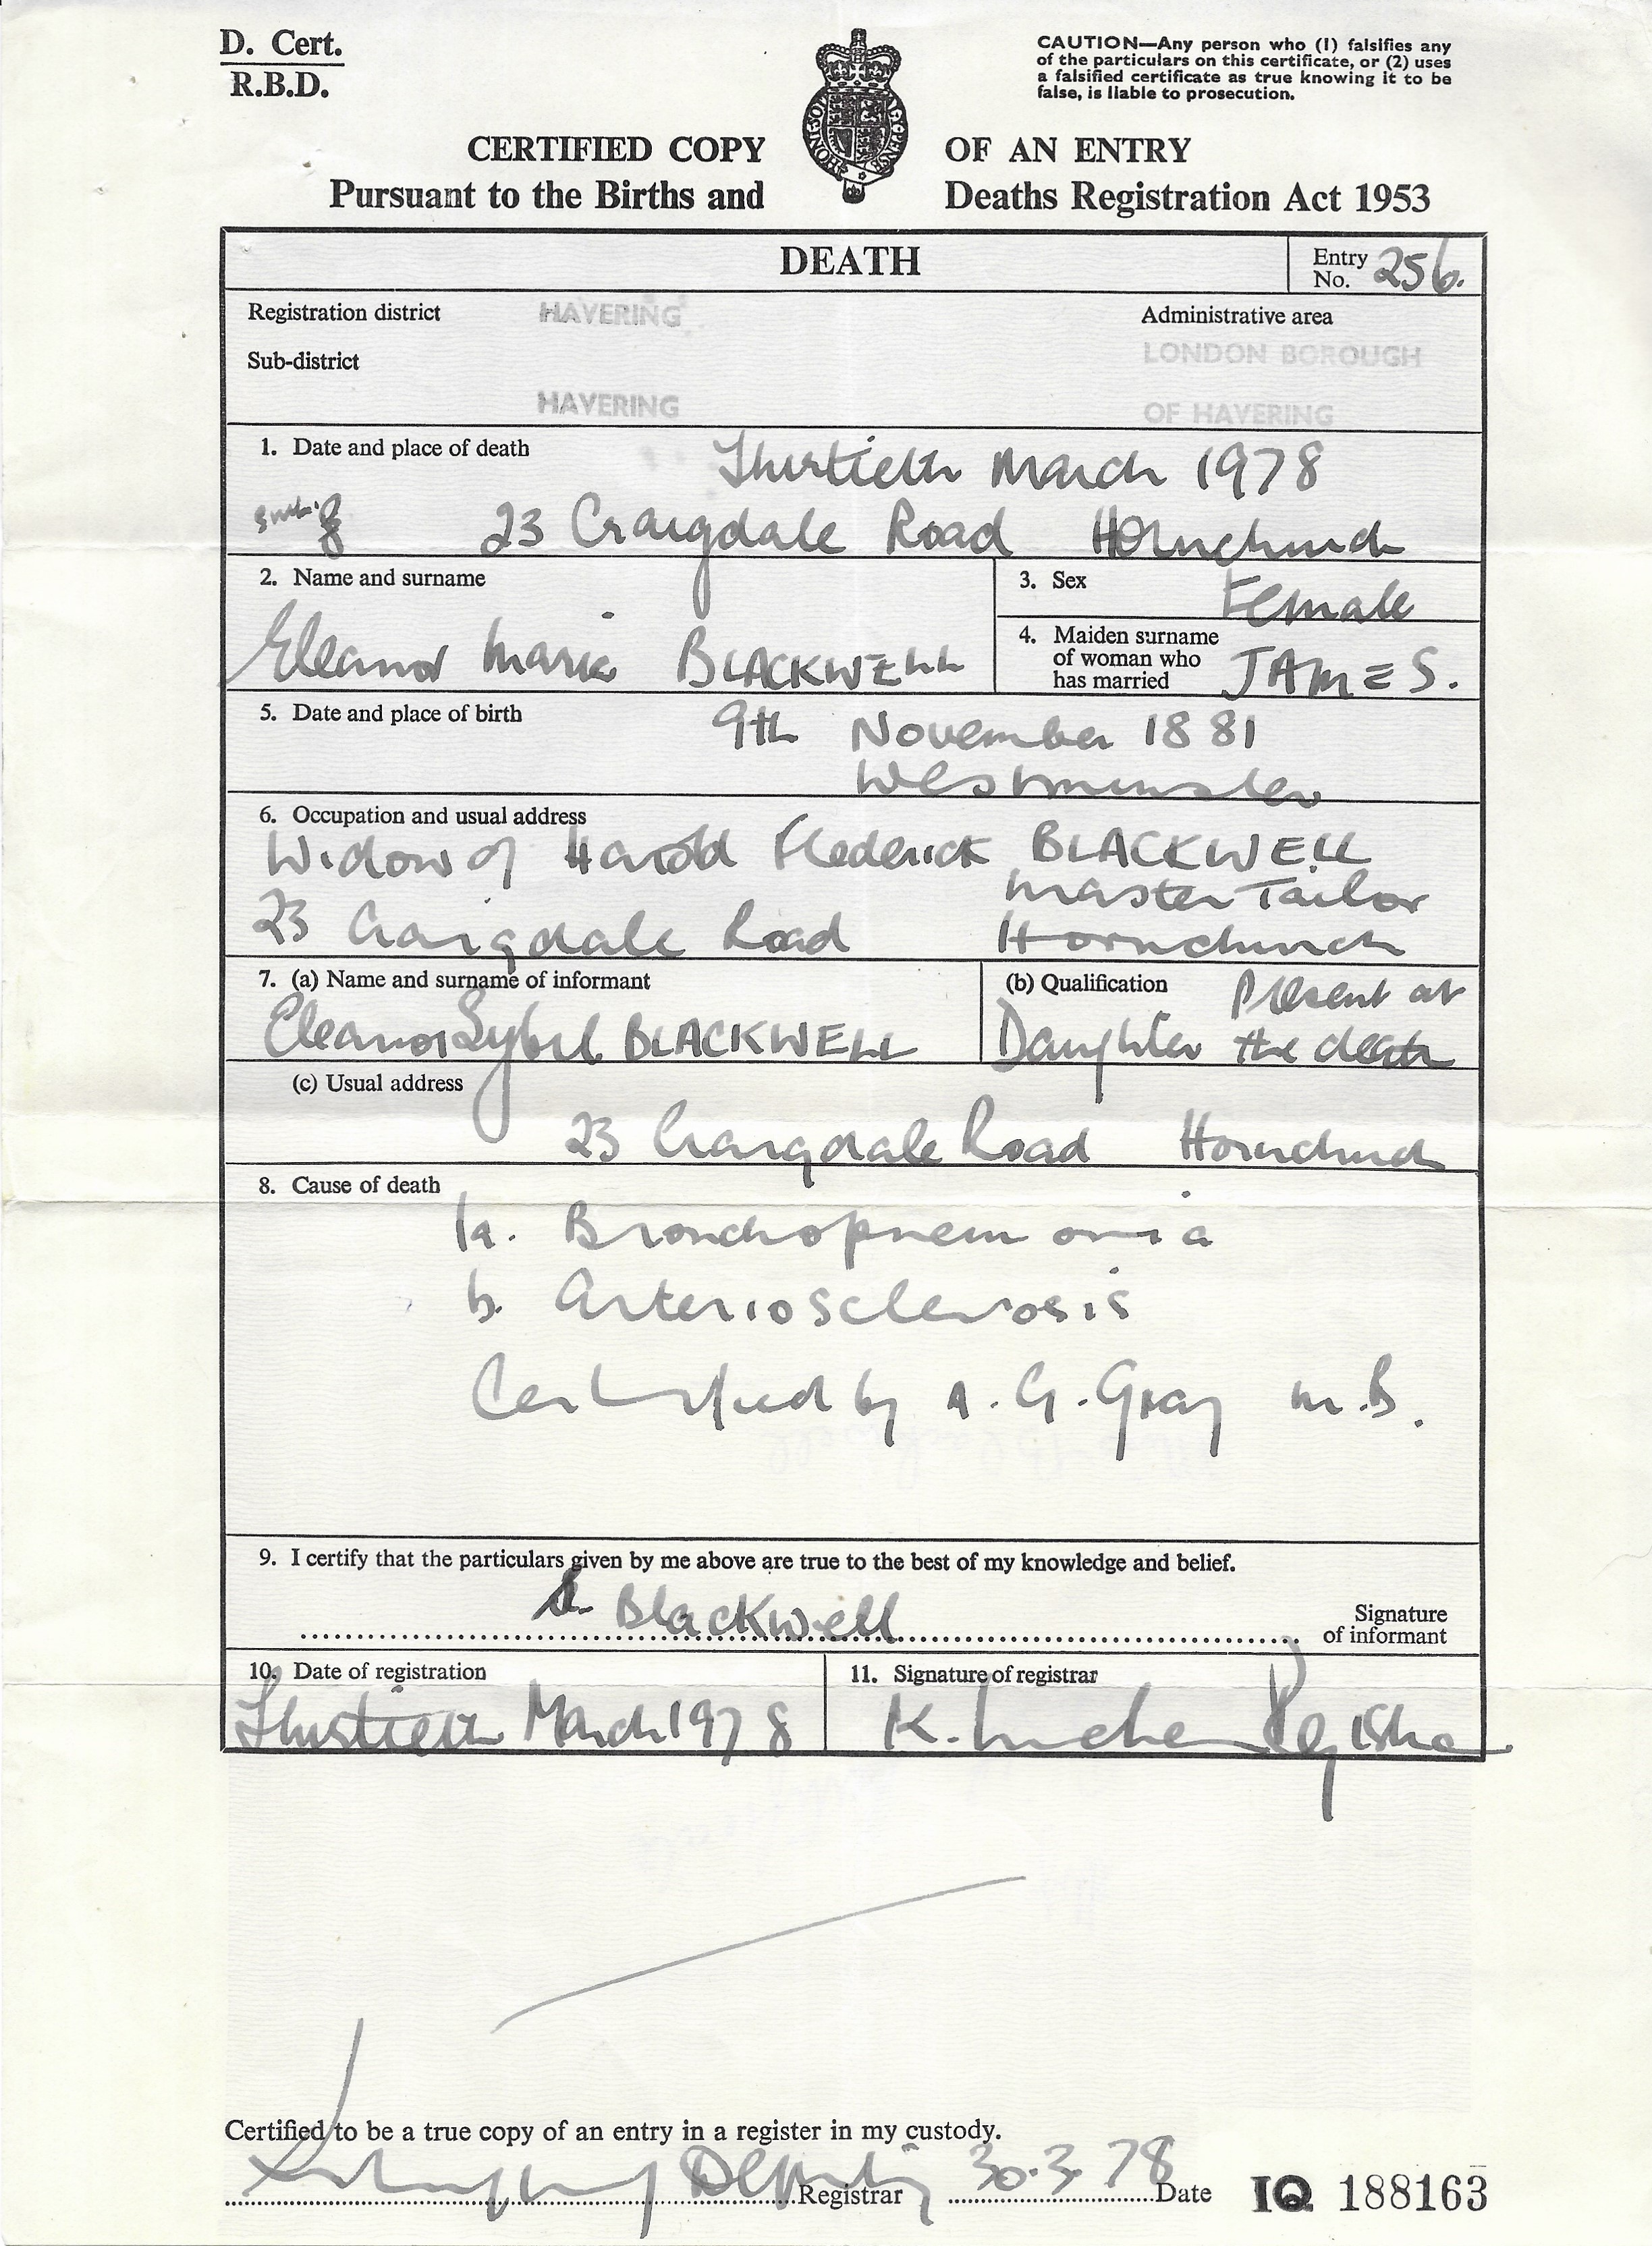 D. Cert.
R.B.D.
CAUTION—Any person who (1) falsifies any
of the particulars on this certificate, or (2) uses
a falsified certificate as true knowing it to be
false, is liable to prosecution.
CERTIFIED COPY OF AN ENTRY
Pursuant to the Births and Deaths Registration Act 1953
HONI SOIT
DEATH
Entry No. 256.
Registration district HAVERING Administrative area
Sub-district LONDON BOROUGH
HAVERING OF HAVERING
1. Date and place of death Thirtieth March 1978
23 Craigdale Road Hornchurch
2. Name and surname
Eleanor Maria BLACKWELL
3. Sex Female
4. Maiden surname of woman who has married JAMES.
5. Date and place of birth 9th November 1881
Westminster
6. Occupation and usual address
Widow of Harold Frederick BLACKWELL
Master Tailor
23 Craigdale Road Hornchurch
7. (a) Name and surname of informant
Eleanor Sybil BLACKWELL
(b) Qualification Present at
Daughter the death
(c) Usual address
23 Craigdale Road Hornchurch
8. Cause of death
1a. Bronchopneumonia
b. Arteriosclerosis
Certified by A. G. Gray M.B.
9. I certify that the particulars given by me above are true to the best of my knowledge and belief.
Blackwell Signature of informant
10. Date of registration
Thirtieth March 1978
11. Signature of registrar
K. Registrar
Certified to be a true copy of an entry in a register in my custody.
Deputy Registrar 30.3.78 Date
IQ 188163